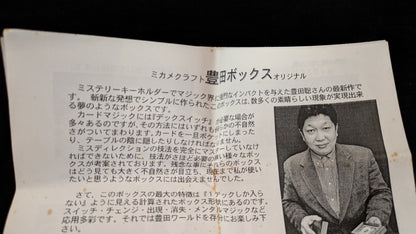 ミカメクラフト 豊田ボックス オリジナル
ミステリーキーホルダーでマジック界に 的なインパクトを与えた豊田聡さんの最新作で
す。斬新な発想でシンプルに作られたこのボックスは、数多くの素晴らしい現象が実現出来
る夢のようなボックスです。
カードマジックには『デックスイッチ』が必要な場合が
多々あるのですが、その方法にはいずれも 不自然
さがついてまわります。カードを一旦ポケットにしまった
り、テーブルの陰に隠したりしなければなりません。
ミスディレクションの技法を完全にマスターしていなけ
ればできないために、技法がさほど必要の無い様々なボッ
クスが考案されております。残念な事にそれらのボックス
はどう見ても大きく不自然さが目立ち、現在まで私が使い
たいと思うようなボックスには出会えませんでした。
さて、このボックスの最大の特徴は『1デックしか入ら
ない』ように見える計算されたボックス形状にあるのです。
スイッチ・チェンジ・出現・消失・メンタルマジックなど
応用多彩です。それでは豊田ワールドを存分にお楽しみ下
さい。